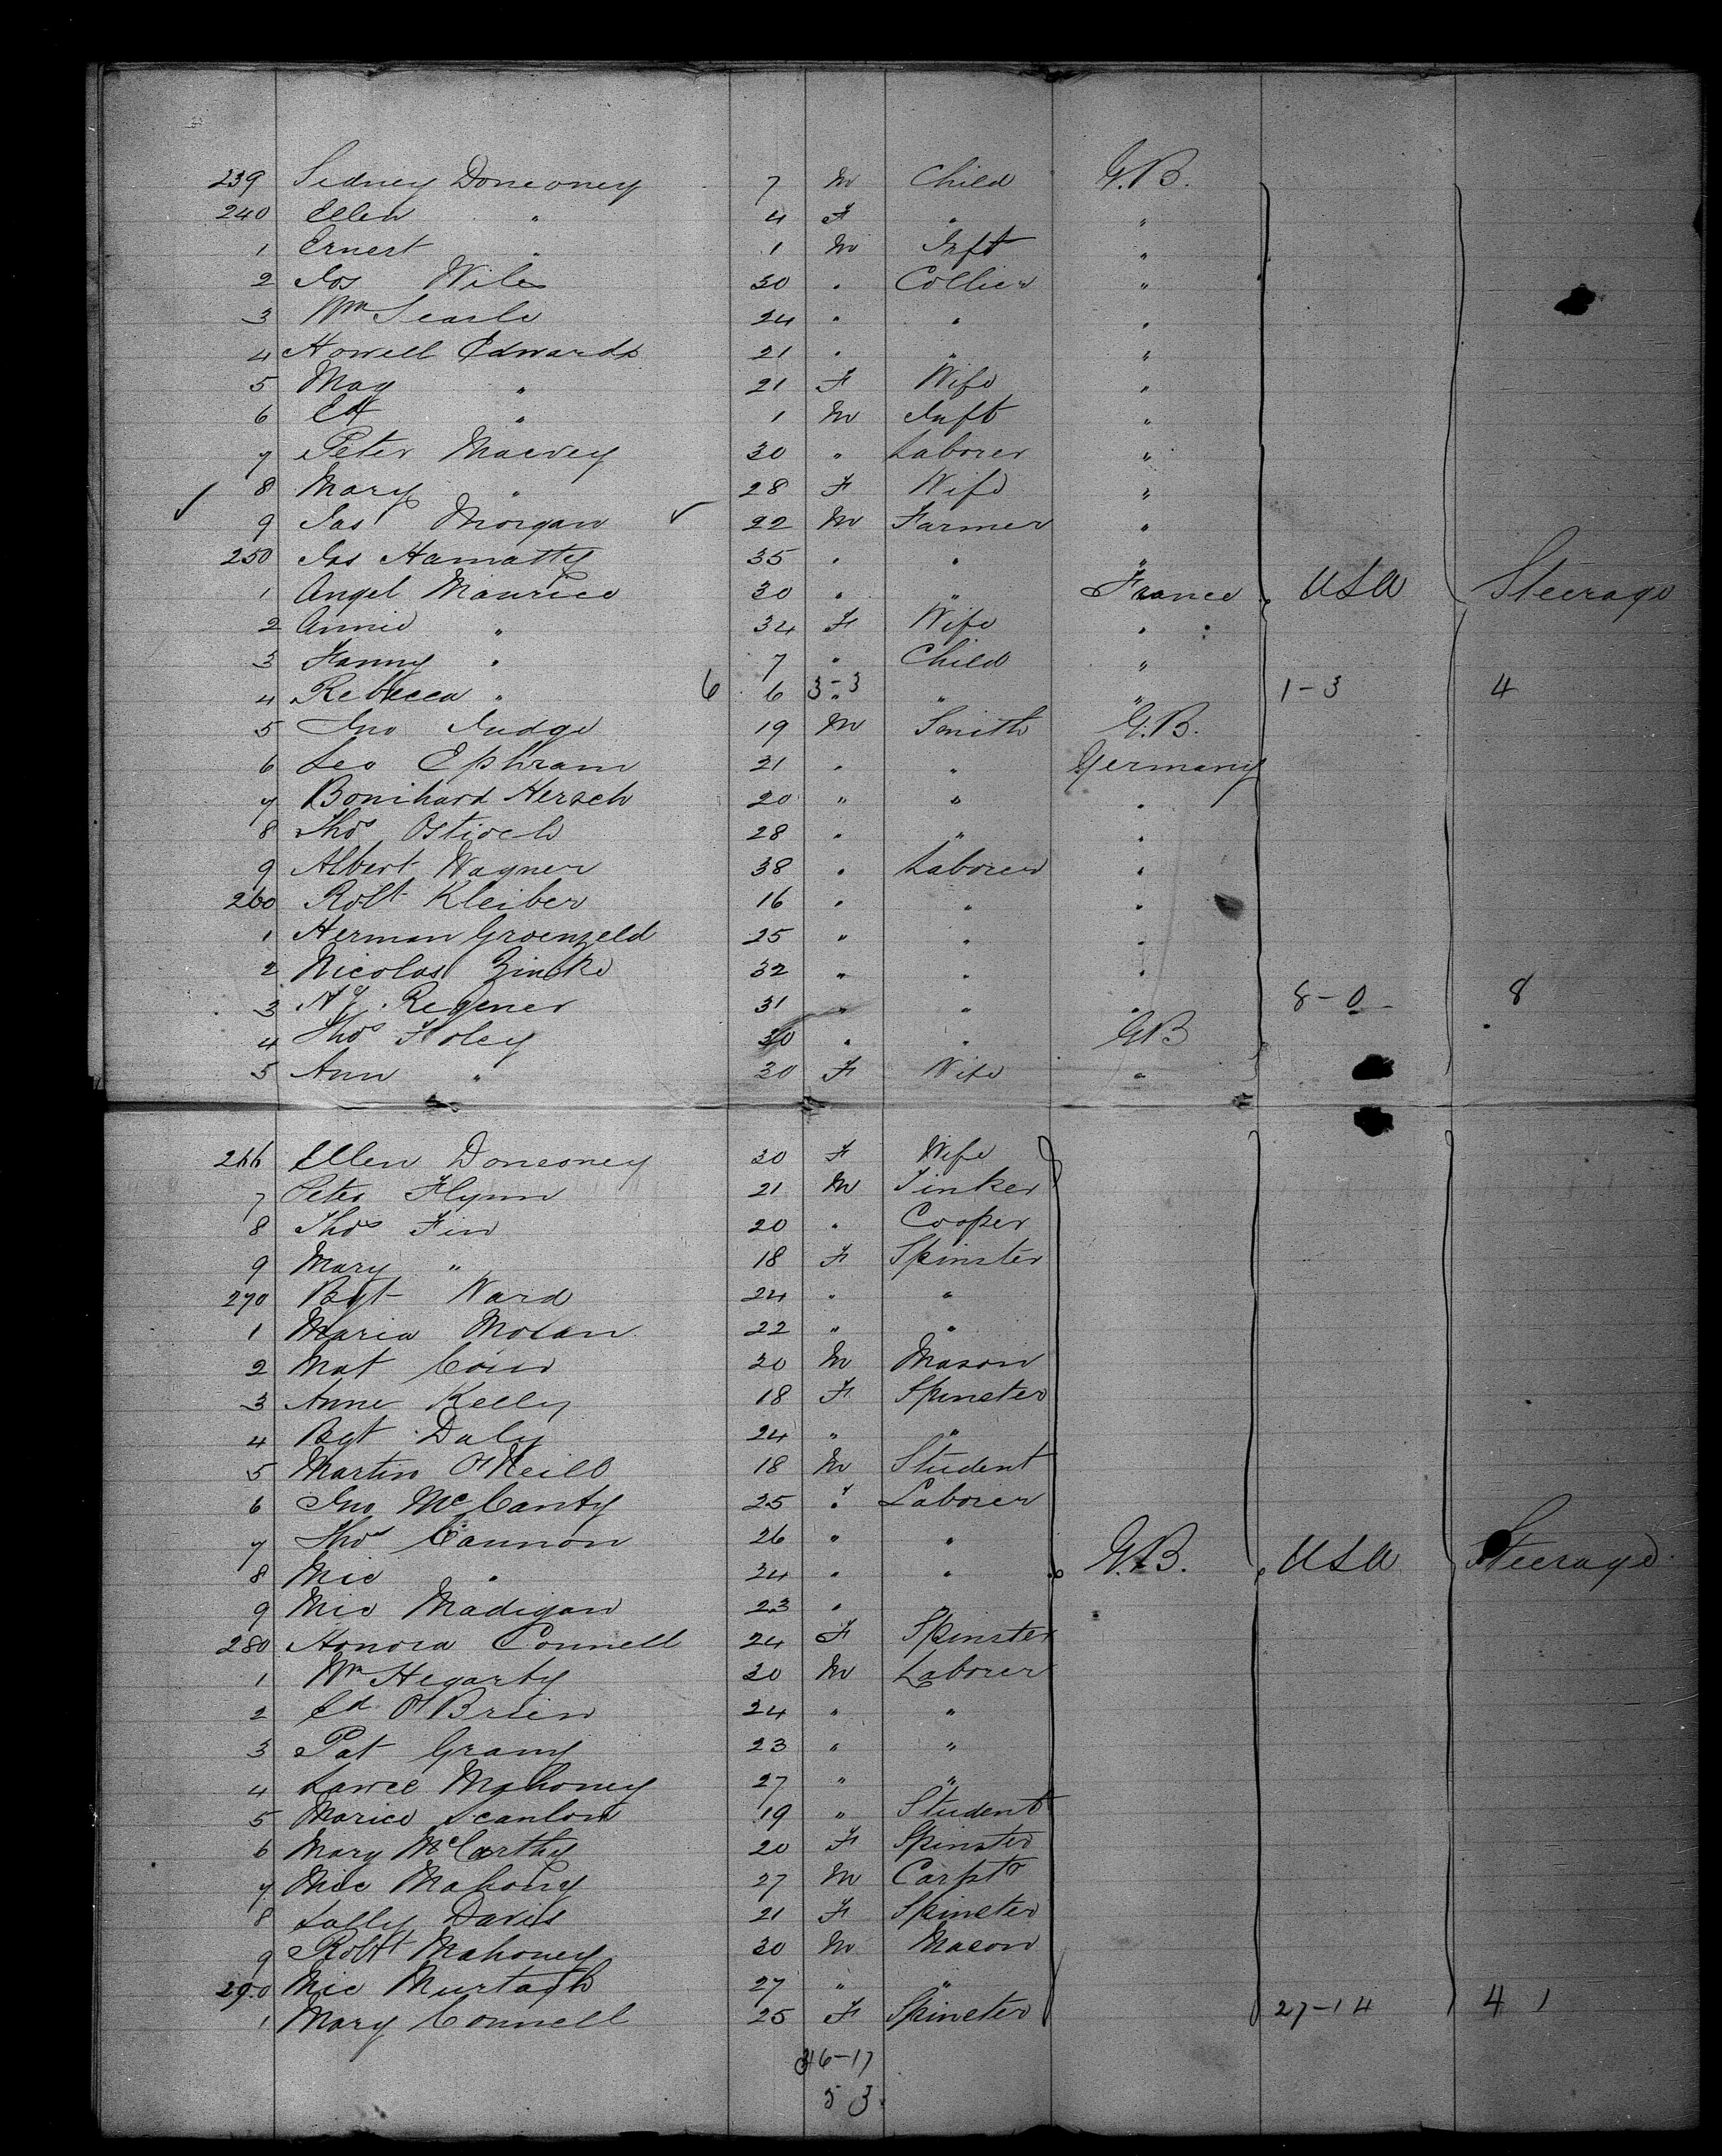 239 Sidney Doneoney 7 M Child G.B.
240 Ellen " 4 F " "
1 Ernest " 1 M Inft "
2 Jos Wiles 30 " Collier "
3 Wm Searle 24 " " "
4 Howell Edwards 21 " " "
5 May " 21 F Wife "
6 Ed " 1 M Inft "
7 Peter Macvey 30 " Laborer "
8 Mary " 28 F Wife "
9 Jas Morgan 22 M Farmer "
250 Jas Hamatty 35 " " "
1 Angel Maurice 30 " " France USA Steerage
2 Annie " 34 F Wife "
3 Fanny " 7 " Child "
4 Rebecca " 6 6 3-3 " " " 1-3 4
5 Jno Judge 19 M Smith G.B.
6 Leo Ephram 21 " " Germany
7 Bonihard Hersch 20 " " "
8 Thos Ostioch 28 " " "
9 Albert Wagner 38 " Laborer "
260 Robt Kleiber 16 " " "
1 Herman Groenzeld 25 " " "
2 Nicolas Zinske 32 " " "
3 Regener 31 " " " 8-0 8
4 Thos Foley 30 " " GB
5 Ann " 30 F Wife "
266 Ellen Doneoney 30 F Wife
7 Peter Flynn 21 M Tinker
8 Thos Fin 20 " Cooper
9 Mary " 18 F Spinster
270 Bgt Ward 24 " "
1 Maria Molan 22 " "
2 Mat Coin 20 M Mason
3 Anne Kelly 18 F Spinster
4 Bgt Daly 24 " "
5 Martin O'Neill 18 M Student
6 Jno McCanty 25 " Laborer
7 Thos Cannon 26 " "
8 Mic " 24 " " G.B. USA Steerage
9 Mic Madigan 23 " "
280 Honora Connell 24 F Spinster
1 Wm Hegarty 20 M Laborer
2 Ed O'Brien 24 " "
3 Pat Grany 23 " "
4 Lawce Mahoney 27 " "
5 Marice Scanlon 19 " Student
6 Mary McCarthy 20 F Spinster
7 Mic Mahony 27 M Carptr
8 Sally Davis 21 F Spinster
9 Robt Mahoney 30 M Mason
290 Mic Murtagh 27 " "
1 Mary Connell 25 F Spinster 27-14 41
36-17
53